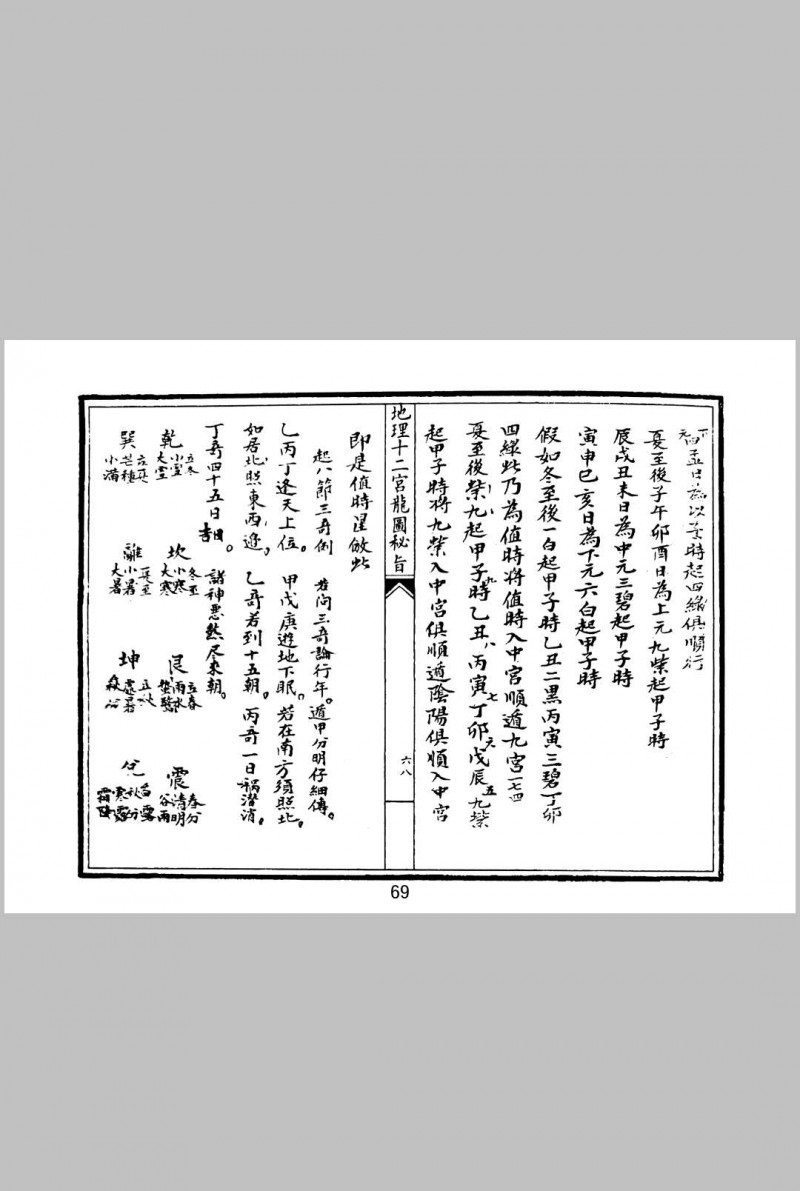 下元四孟日為以子時起四綠俱順行
夏至後子午卯酉日為上元九紫起甲子時
辰戌丑未日為中元三碧起甲子時
寅申巳亥日為下元六白起甲子時
假如冬至後一白起甲子時乙丑二黑丙寅三碧丁卯
四綠此乃為值時將值時入中宮順遁九宮一七四
夏至後紫九起甲子時九乙丑八丙寅七丁卯六戊辰五九紫
起甲子時將九紫入中宮俱順遁陰陽俱順入中宮
地理十二宮龍圖秘旨
六八
即是值時星倣此
起八節三奇例 若問三奇論行年。遁甲分明仔細傳。
乙丙丁逢天上位。甲戊庚遊地下眠。若在南方須照北。
如居北照東西進。乙奇若到十五朝。丙奇一日禍潛消。
丁奇四十五日。諸神悉煞尽來朝。
乾 立冬 小雪 大雪
坎 冬至 小寒 大寒
艮 立春 雨水 驚蟄
震 春分 清明 谷雨
巽 立夏 芒種 小滿
離 夏至 小暑 大暑
坤 立秋 處暑
兌 白露 秋分 寒露 霜降
69